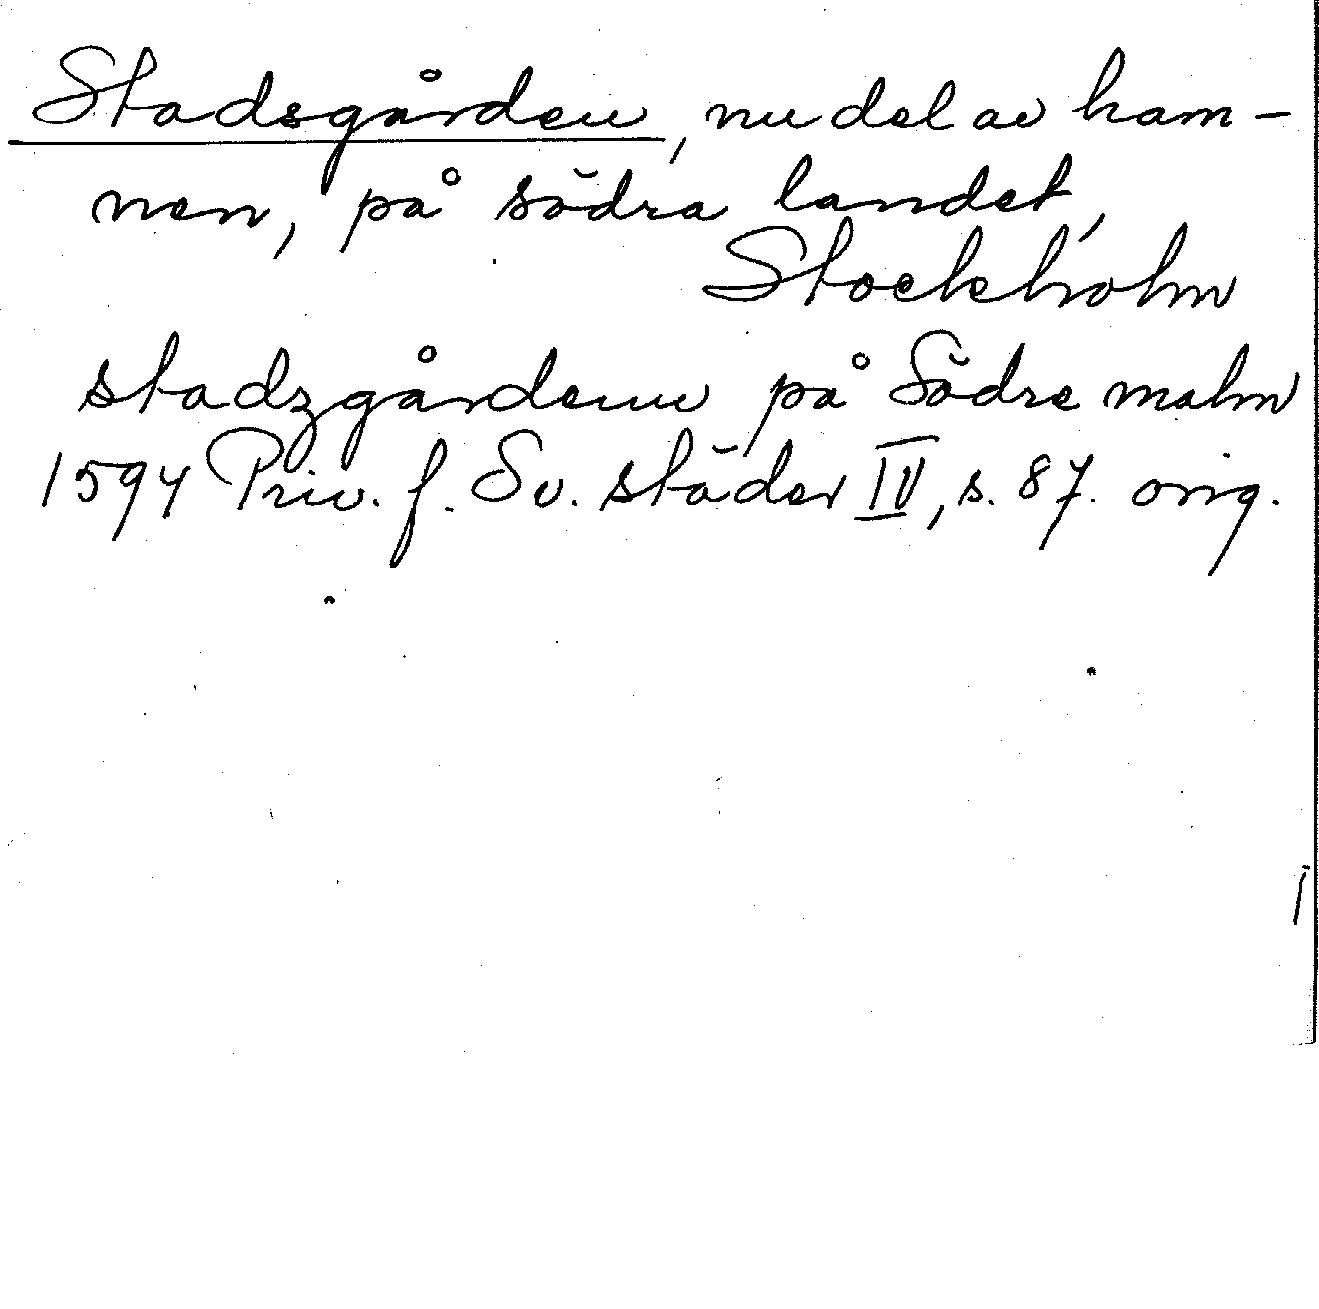 Stadsgården, nu del av ham-
nen, på södra landet,
Stockholm
stadzgårdenn på Södre malm
1594 Priv. f. Sv. städer IV, s. 87. orig.